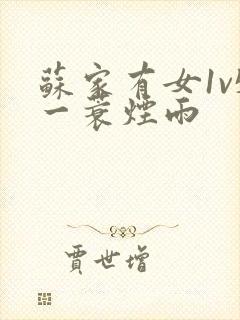 蘇家有女1v
一蓑煙雨
賈世增